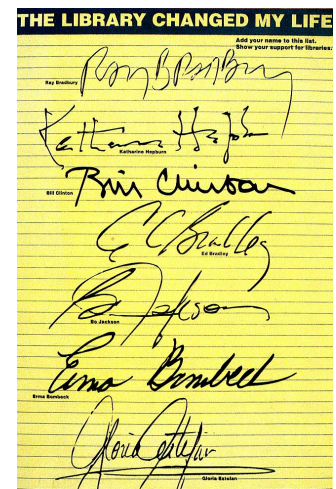 THE LIBRARY CHANGED MY LIFE
Add your name to this list.
Show your support for libraries:
Ray Bradbury
Ray Bradbury
Katharine Hepburn
Katharine Hepburn
Bill Clinton
Bill Clinton
Ed Bradley
Ed Bradley
Bo Jackson
Bo Jackson
Erma Bombeck
Erma Bombeck
Gloria Estefan
Gloria Estefan